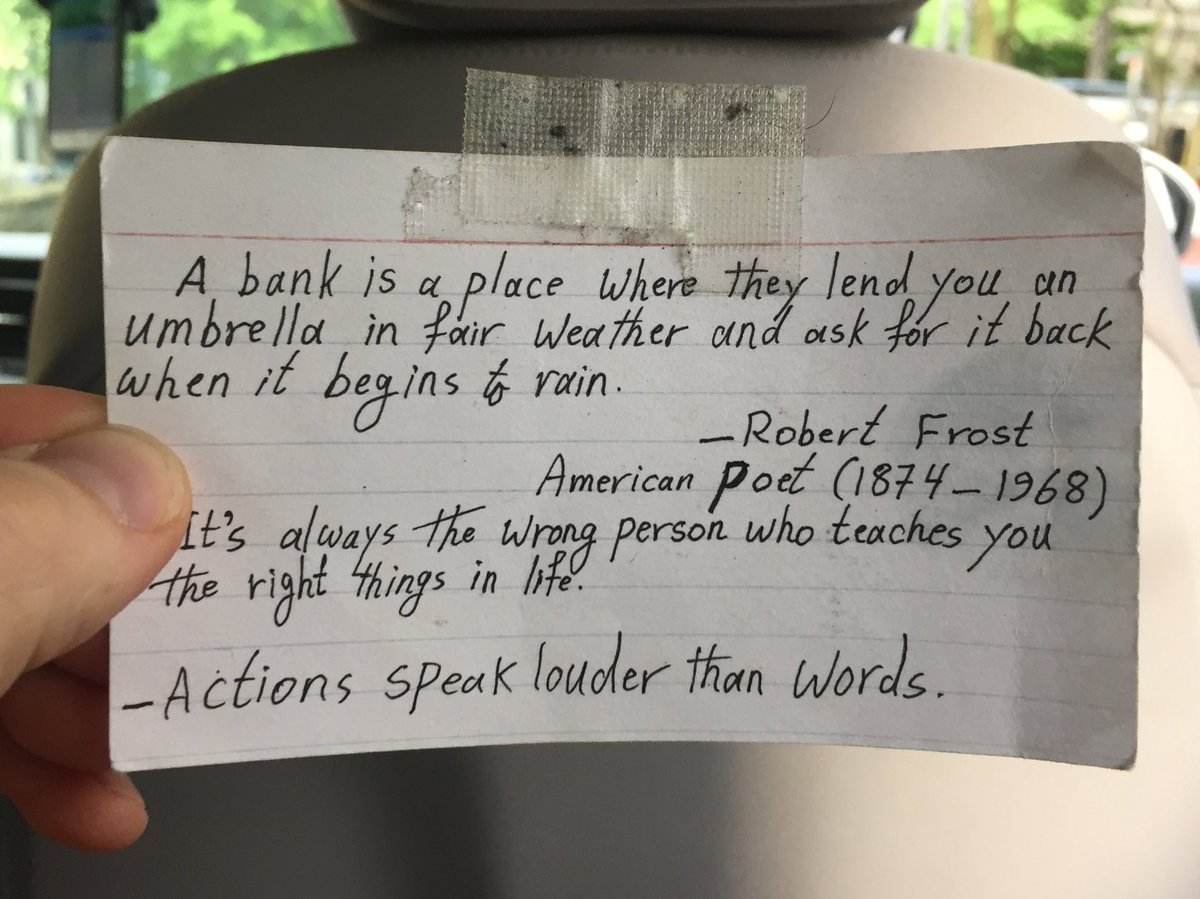 A bank is a place where they lend you an
umbrella in fair weather and ask for it back
when it begins to rain.
—Robert Frost
American Poet (1874—1968)
It's always the wrong person who teaches you
the right things in life.
—Actions speak louder than words.